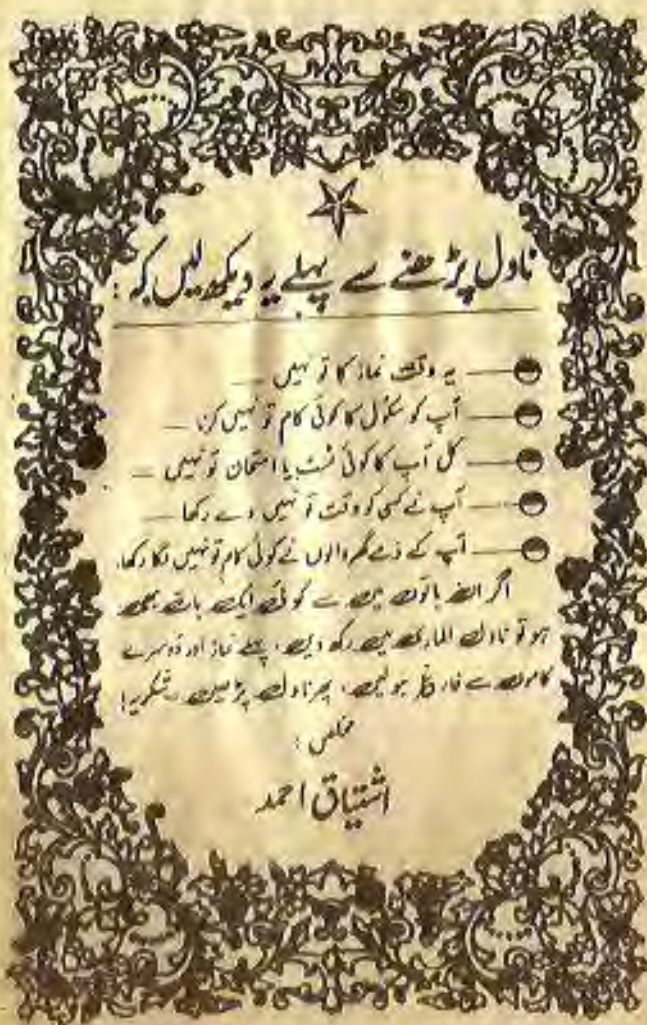 ناول پڑھنے سے پہلے یہ دیکھ لیں کہ :
یہ وقت نماز کا تو نہیں ــــ
آپ کو سکول کا کوئی کام تو نہیں کرنا ــــ
کل آپ کا کوئی ٹسٹ یا امتحان تو نہیں ــــ
آپ نے کسی کو وقت تو نہیں دے رکھا ــــ
آپ کے ذمے گھر والوں نے کوئی کام تو نہیں لگا رکھا۔
اگر ان باتوں میں سے کوئی ایک بات بھی
ہو تو ناول الماری میں رکھ دیں، پہلے نماز اور دوسرے
کاموں سے فارغ ہو لیں، پھر ناول پڑھیں۔ شکریہ!
مخلص :
اشتیاق احمد